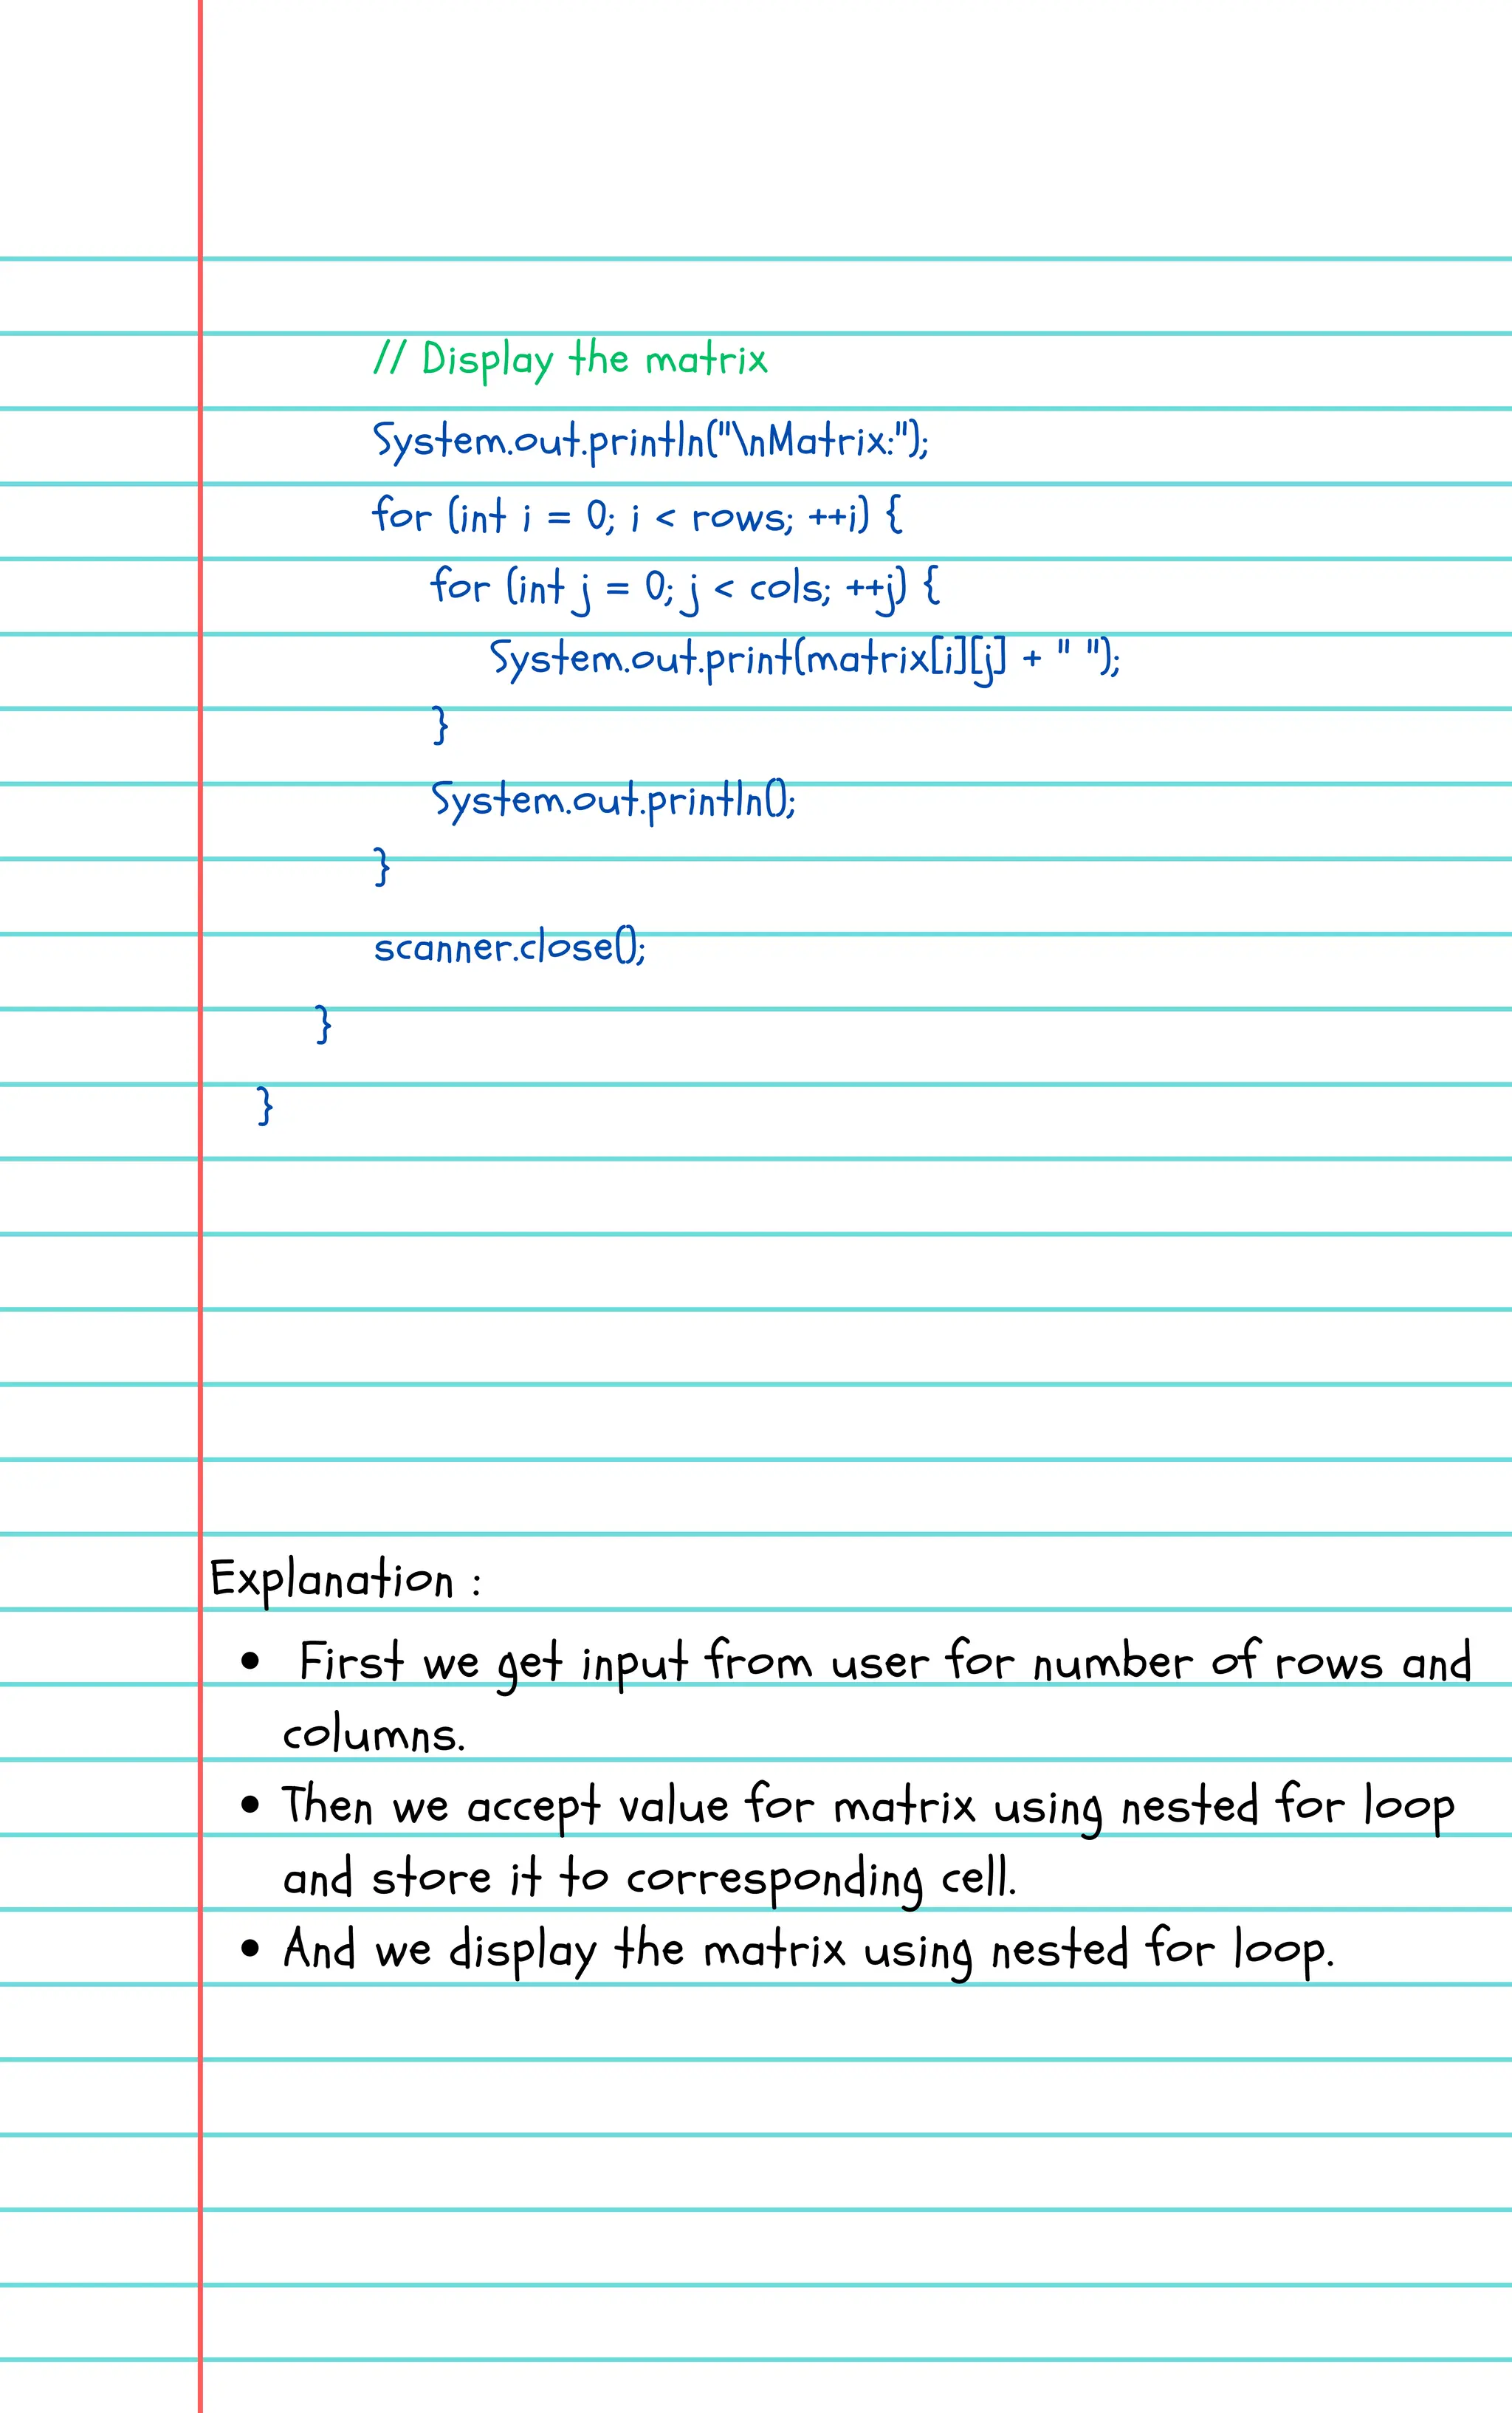 // Display the matrix
System.out.println("\nMatrix:");
for (int i = 0; i < rows; ++i) {
for (int j = 0; j < cols; ++j) {
System.out.print(matrix[i][j] + " ");
}
System.out.println();
}
scanner.close();
}
}
Explanation :
• First we get input from user for number of rows and
columns.
• Then we accept value for matrix using nested for loop
and store it to corresponding cell.
• And we display the matrix using nested for loop.